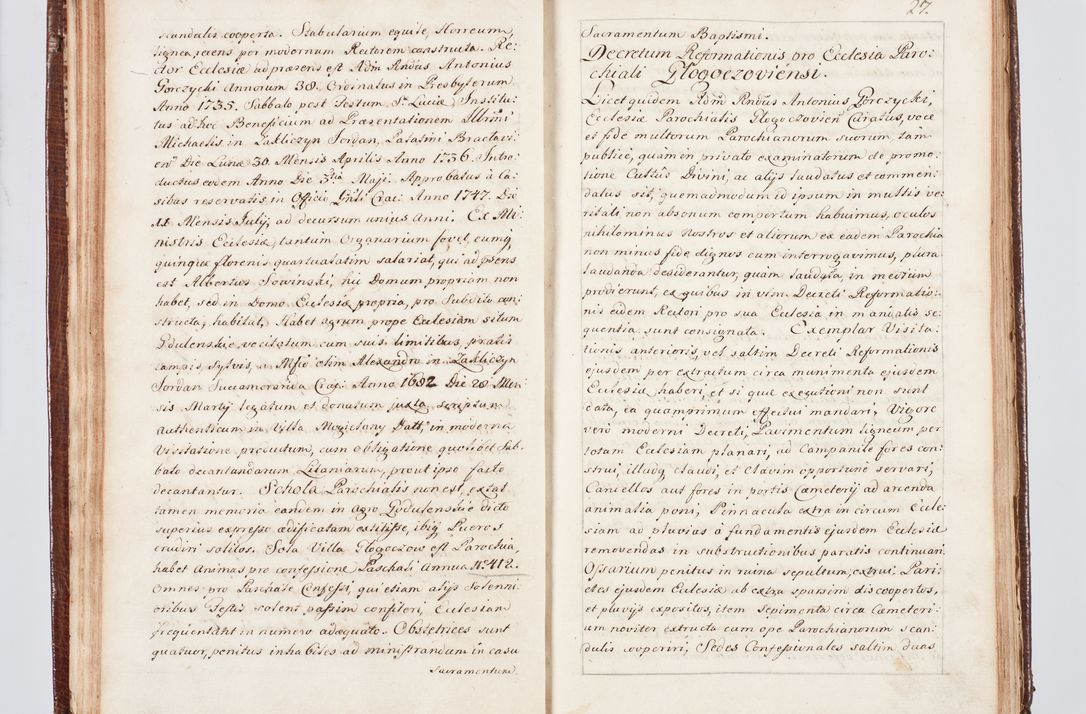 scandalis cooperta. Stabularium equile, Horreum,
lignea recens per modernum Rectorem constructa. Re:
ctor Ecclesiæ ad præsens est Adm Rndus Antonius
Gorczycki Annorum 38. Ordinatus in Presbyterum
Anno 1735. Sabbato post Festum Stæ Luciæ Institu:
tus ad hoc Beneficium ad Præsentationem Illrmi
Michaelis in Zakliczyn Jordan, Palatini Braclavi:
en: Die Lunæ 30. Mensis Aprilis Anno 1736. Intro:
ductus eodem Anno Die 3tia Maji. Approbatus à Ca:
sibus reservatis in Officio Gnli Crac: Anno 1747. Die
18. Mensis Julij, ad decursum unius Anni. Ex Mi:
nistris Ecclesiæ tantum Organarium fovet, eumq
quinque florenis quartualatim salariat, qui ad psens
est Albertus Sowinski, hic Domum propriam non
habet, sed in Domo Ecclesiæ propria, pro Subdito con:
structa, habitat, Habet agrum prope Ecclesiam situm
Godulenskie vocitatum cum suis limitibus, pratis
campis, Sylvis, a Mfco olim Alexandro in Zakliczyn
Jordan Succamerarida Crac: Anno 1682 Die 28. Men:
sis Martij legatum et donatum juxta scriptum
authenticum in Villa Mogielany Datt, in moderna
Visitatione productum, cum obligatione quolibet Sab:
bato decantandarum Litaniarum, prout ipso facto
decantantur. Schola Parochialis non est, extat
tamen memoria eandem in agro Godulenskie dicto
superius expresso ædificatam extitisse, ibiq Pueros
erudiri solitos. Sola Villa Głogoczow est Parochia,
habet Animas pro confessione Paschali Annua Nº 412.
Omnes pro Paschate Confessi, qui etiam alijs Solenni:
oribus Festis solent passim confiteri, Ecclesiam
frequentant in numero adæquato. Obstetrices sunt
quatuor, penitus inhabiles ad ministrandum in casu
Sacramentum
27.
Sacramentum Baptismi.
Decretum Reformationis pro Ecclesia Paro:
chiali Głogoczoviensi.
Licet quidem Adm Rndus Antonius Gorczycki,
Ecclesiæ Parochialis Glogoczovien Curatus, voce
et fide multorum Parochianorum suorum tam
publicè, quàm in privato examinatorum de promo:
tione Cultus Divini, ac alijs laudatus et commen:
datus sit, quemadmodum id ipsum in multis ve:
ritati non absonum compertum habuimus, oculos
nihilominus Nostros et aliorum ex eadem Parochia
non minus fide dignos cum interrogavimus, plura
laudanda desiderantur, quàm laudata, in medium
prodierunt, ex quibus in vim Decreti Reformatio:
nis eidem Rectori pro sua Ecclesia in mandatis se:
quentia sunt consignata. Exemplar Visita:
tionis anterioris, vel saltim Decreti Reformationis
ejusdem per extractum circa munimenta ejusdem
Ecclesiæ haberi, et si quæ executioni non sunt
data, ea quamprimum effectui mandari; Vigore
verò moderni Decreti, Pavimentum ligneum per
totam Ecclesiam planari, ad Campanile fores con:
strui, illudq claudi, et Clavim opportunè servari,
Cancellos aut fores in portis Cæmeterij ad arcenda
animalia poni, Pennacula extra in circum Eccle:
siam ad pluvias à fundamentis ejusdem Ecclesiæ
removendas in substructionibus paratis continuari
Ossarium penitus in ruina sepultum, extrui, Pari:
etes ejusdem Ecclesiæ ab extra sparsim discoopertos,
et pluvijs expositos, item Sepimenta circa Cæmeteri:
um noviter extructa cum ope Parochianorum scan:
dulis cooperiri, Sedes Confessionales saltim duas